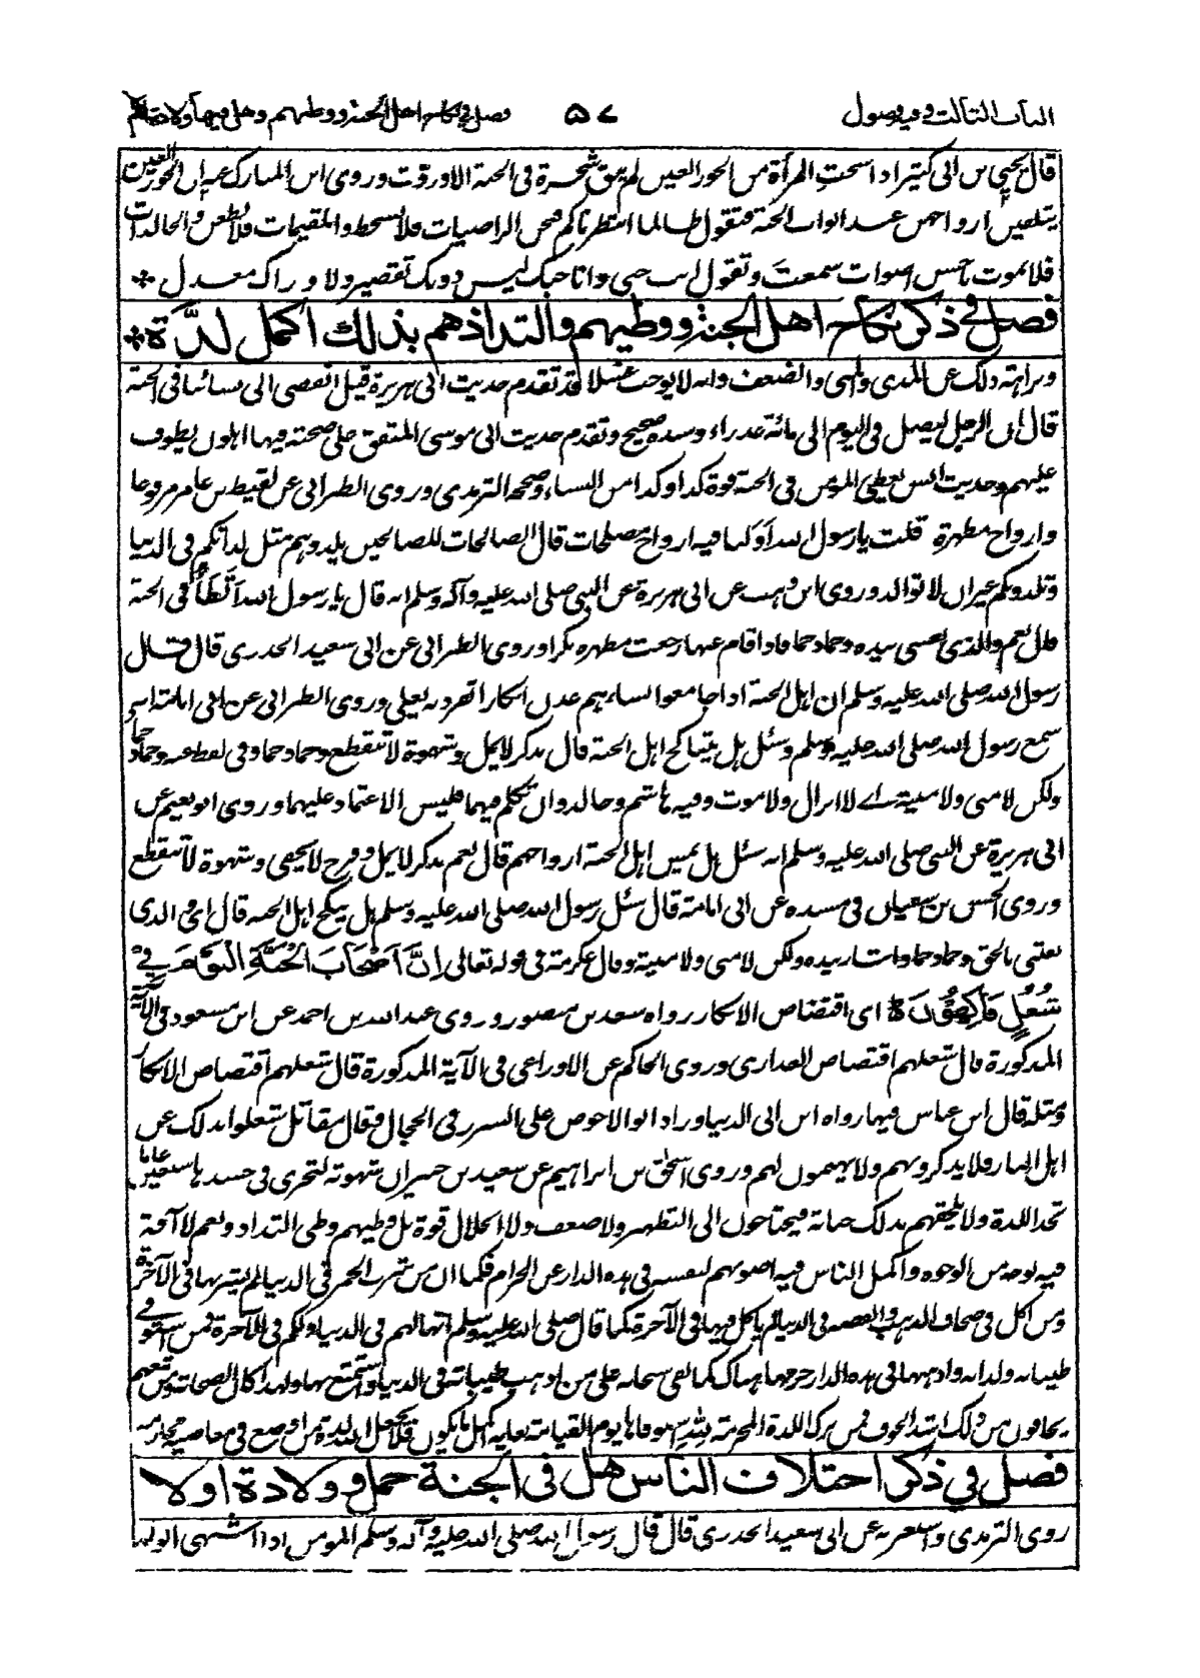 الباب الثالث وفيه فصول ٥٧ فصل في نكاح اهل الجنة ووطيهم وهل فيها ولادة ام
قال يحيى بن ابى كثير اذا سبحت المرأة من الحور العين لم يبق شجرة فى الجنة الا وردت وروى ابن المبارك عنه ان الحور العين
يتلقين ازواجهن عند ابواب الجنة فتقول طالما انتظرناكم فنحن الراضيات فلا نسخط والمقيمات فلا نظعن والخالدات
فلا نموت باحسن اصوات سمعت وتقول انت حبى وانا حبك ليس دونك تقصير ولا وراءك معدل *
فصل في ذكر نكاح اهل الجنة ووطيهم والتذاذهم بذلك اكمل لذة *
ونزاهة ذلك عن المذى والمنى والضعف وانه لا يوجب غسلا قد تقدم حديث ابى هريرة قيل انفضى الى نسائنا فى الجنة
قال ان الرجل ليصل فى اليوم الى مائة عذراء وسنده صحيح وتقدم حديث ابى موسى المتفق على صحته فيها اهلون يطوف
عليهم وحديث انس يعطى المؤمن فى الجنة قوة كذا وكذا من النساء وصححه الترمذى وروى الطبرانى عن لقيط بن عامر مرفوعا
وازواج مطهرة قلت يا رسول الله أو لنا فيها ازواج مصلحات قال الصالحات للصالحين يلذونهم مثل لذاتكم فى الدنيا
وتلذونكم غير ان لا توالد وروى ابن وهب عن ابى هريرة عن النبى صلى الله عليه وآله وسلم انه قال يا رسول الله أنطأ فى الجنة
قال نعم والذى نفسى بيده دحما دحما فاذا قام عنها رجعت مطهرة بكرا وروى الطبرانى عن ابى سعيد الخدرى قال قال
رسول الله صلى الله عليه وسلم ان اهل الجنة اذا جامعوا نساءهم عدن ابكارا تفرد به يعلى وروى الطبرانى عن ابى امامة انه
سمع رسول الله صلى الله عليه وسلم وسئل هل يتناكح اهل الجنة قال بذكر لا يمل وشهوة لا تنقطع دحما دحما وفى لفظ عنه دحما دحما
ولكن لا منى ولا منية اے لا انزال ولا موت وفيه هاشم وخالد وان تكلم فيهما فليس الاعتماد عليهما وروى ابو نعيم عن
ابى هريرة عن النبى صلى الله عليه وسلم انه سئل هل يمس اهل الجنة ازواجهم قال نعم بذكر لا يمل وفرج لا يحفى وشهوة لا تنقطع
وروى الحسن بن سفيان فى مسنده عن ابى امامة قال سئل رسول الله صلى الله عليه وسلم هل ينكح اهل الجنة قال اى والذى
بعثنى بالحق دحما دحما واشار بيده ولكن لا منى ولا منية وقال عكرمة فى قوله تعالى اِنَّ اَصْحَابَ الْجَنَّةِ الْيَوْمَ فِيْ
شُغُلٍ فَاكِهُوْنَ اى افتضاض الابكار رواه سعيد بن منصور وروى عبد الله بن احمد عن ابن مسعود فى الآية
المذكورة قال شغلهم افتضاض العذارى وروى الحاكم عن الاوزاعى فى الآية المذكورة قال شغلهم افتضاض الابكار
ومثله قال ابن عباس فيما رواه ابن ابى الدنيا وزاد ابو الاحوص على السرر فى الحجال وقال مقاتل شغلوا بذلك عن
اهل النار فلا يذكرونهم ولا يهتمون لهم وروى اسحق بن ابراهيم عن سعيد بن جبير ان شهوته لتجرى فى جسده سبعين عاما
تجد اللذة ولا يلحقهم بذلك جنابة فيحتاجون الى التطهر ولا ضعف ولا انحلال قوة بل وطيهم وطى التذاذ ونعم لا آفة
فيه بوجه من الوجوه واكمل الناس فيه اصونهم لنفسه فى هذه الدار عن الحرام فكما ان من شرب الخمر فى الدنيا لم يشربها فى الآخرة
ومن اكل فى صحاف الذهب والفضة فى الدنيا لم ياكل فيها فى الآخرة كما قال صلى الله عليه وسلم انها لهم فى الدنيا ولكم فى الآخرة فمن استوفى
طيباته ولذاته واذهبها فى هذه الدار حرمها هناك كما نعى سبحانه على من اذهب طيباته فى الدنيا واستمتع بها ولهذا كان الصحابة ومن تبعهم
يخافون من ذلك اشد الخوف فمن ترك اللذة المحرمة لله استوفاها يوم القيامة
فصل في ذكر اختلاف الناس هل فى الجنة حمل وولادة او لا
روى الترمذى واستغربه عن ابى سعيد الخدرى قال قال رسول الله صلى الله عليه وآله وسلم المؤمن اذا اشتهى الولد